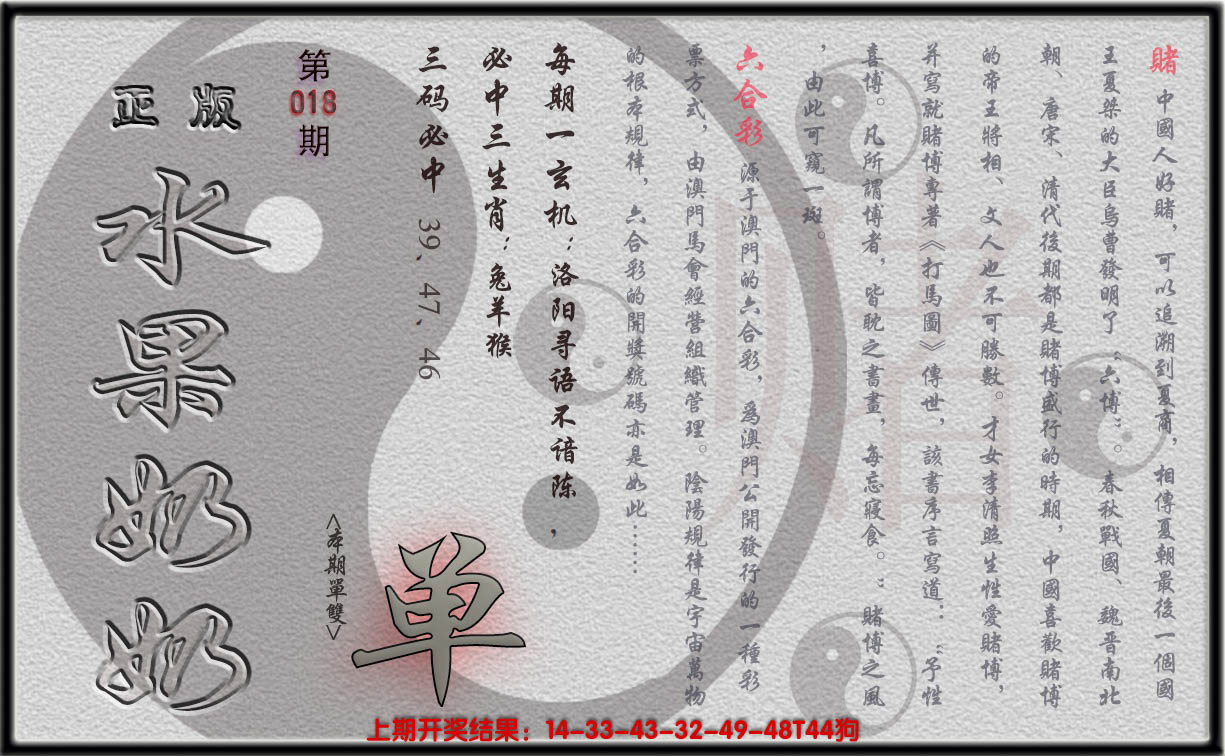 賭 中國人好賭，可以追溯到夏商，相傳夏朝最後一個國
王夏桀的大臣烏曹發明了“六博”。春秋戰國、魏晋南北
朝、唐宋、清代後期都是賭博盛行的時期，中國喜歡賭博
的帝王將相、文人也不可勝數。才女李清照生性愛賭博，
并寫就賭博專著《打馬圖》傳世，該書序言寫道：“予性
喜博。凡所謂博者，皆耽之書畫，每忘寢食。”賭博之風
，由此可窺一斑。
六合彩 源于澳門的六合彩，爲澳門公開發行的一種彩
票方式，由澳門馬會經營組織管理。陰陽規律是宇宙萬物
的根本規律，六合彩的開獎號碼亦是如此……
每期一玄机：洛阳寻语不谙陈，
必中三生肖：兔羊猴
三码必中 39、47、46
第018期
<本期單雙>
单
正版
水果奶奶
赌
上期开奖结果：14-33-43-32-49-48T44狗